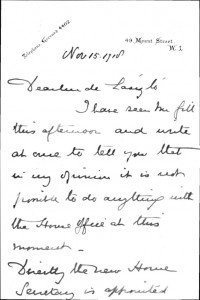 Telephone: Gerrard 4402.
49 Mount Street.
W. 1.
Nov 15. 1918
Dear Mr de László
I have seen Mr Gill
this afternoon and write
at once to tell you that
in my opinion it is not
possible to do anything with
the Home Office at this
moment —
Directly the new Home
Secretary is appointed